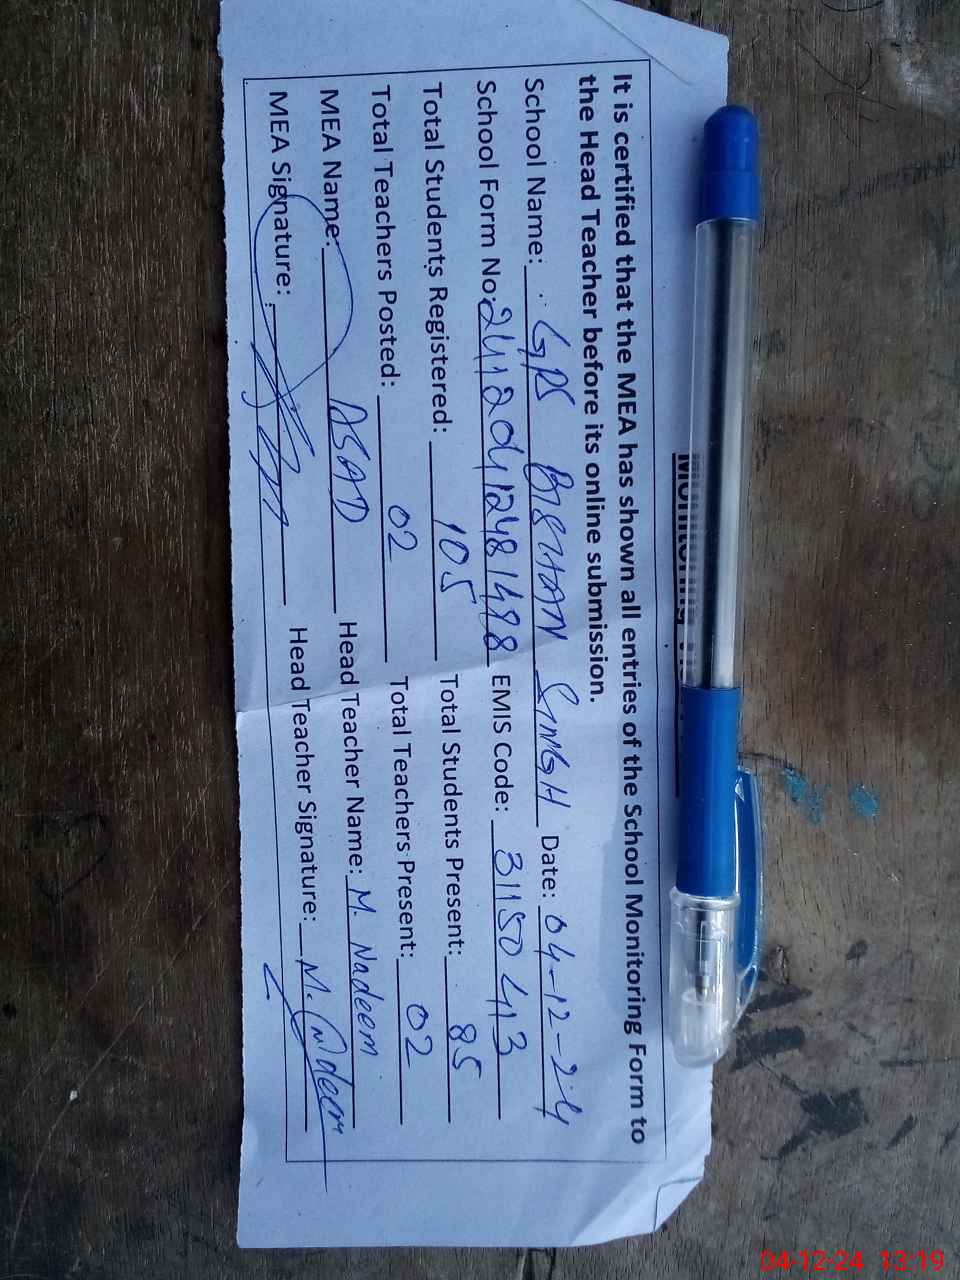 It is certified that the MEA has shown all entries of the School Monitoring Form to
the Head Teacher before its online submission.
School Name: GPS BISHAN SINGH Date: 04-12-24
School Form No: 24120412481488 EMIS Code: 31150413
Total Students Registered: 105 Total Students Present: 85
Total Teachers Posted: 02 Total Teachers Present: 02
MEA Name: ASAD Head Teacher Name: M. Nadeem
MEA Signature: Head Teacher Signature: M. Nadeem
04-12-24 13:19